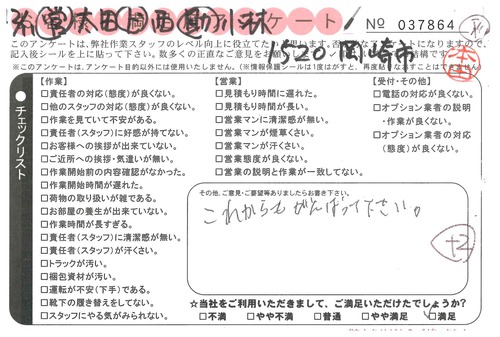 アンケート
No 037864
1520 岡崎市
このアンケートは、弊社作業スタッフのレベル向上に役立てたい
記入後シールを上に貼って下さい。
(※このアンケートは、アンケート目的以外には使用いたしません。(※情報保護シールは1度はがすと、再度貼
チェックリスト
【作業】
□責任者の対応(態度)が良くない。
□他のスタッフの対応(態度)が良くない。
□作業を見ていて不安がある。
□責任者(スタッフ)に好感が持てない。
□お客様への挨拶が出来ていない。
□ご近所への挨拶・気遣いが無い。
□作業開始前の内容確認がなかった。
□作業開始時間が遅れた。
□荷物の取り扱いが雑である。
□お部屋の養生が出来ていない。
□作業時間が長すぎる。
□責任者(スタッフ)に清潔感が無い。
□責任者(スタッフ)が汗くさい。
□トラックが汚い。
□梱包資材が汚い。
□運転が不安(下手)である。
□靴下の履き替えをしてない。
□スタッフにやる気がみられない。
【営業】
□見積もり時間に遅れた。
□見積もり時間が長い。
□営業マンに清潔感が無い。
□営業マンが煙草くさい。
□営業マンが汗くさい。
□営業態度が良くない。
□営業の説明と作業が一致してない。
【受付・その他】
□電話の対応が良くない。
□オプション業者の説明
・作業が良くない。
□オプション業者の対応
(態度)が良くない。
その他、ご意見・ご要望等ありましたらお書き下さい。
これからもがんばって下さい。
+2
☆当社をご利用いただきまして、ご満足いただけたでしょうか?
□不満 □やや不満 □普通 □やや満足 □満足